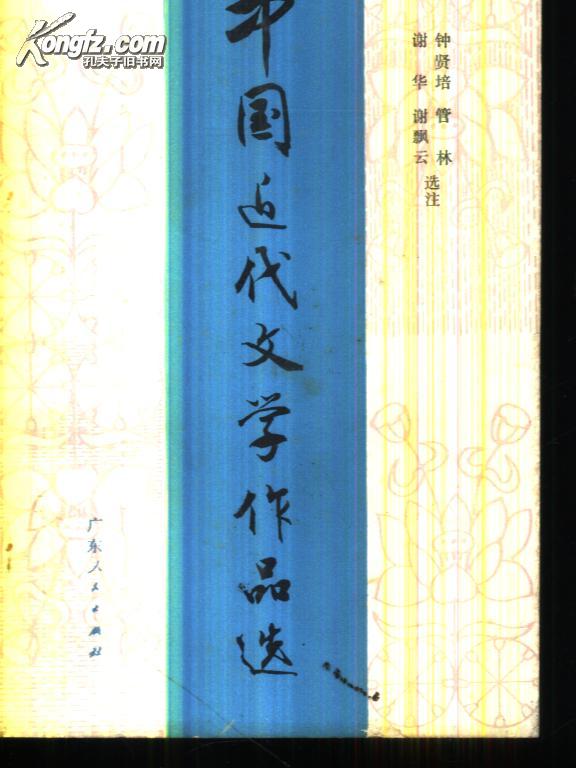 Kongfz.com
孔夫子旧书网
钟贤培 管林
谢华 谢飘云 选注
中国近代文学作品选
广东人民出版社